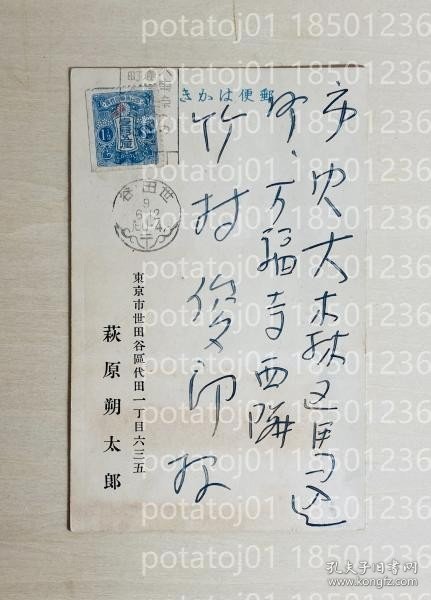 郵便はかき
市内大森区馬込
町、万福寺西隣
竹村俊郎様
東京市世田谷區代田一丁目六三五
萩原朔太郎
世田谷
9
6.12
potatoj01 18501236
孔夫子旧书网
www.kongfz.com